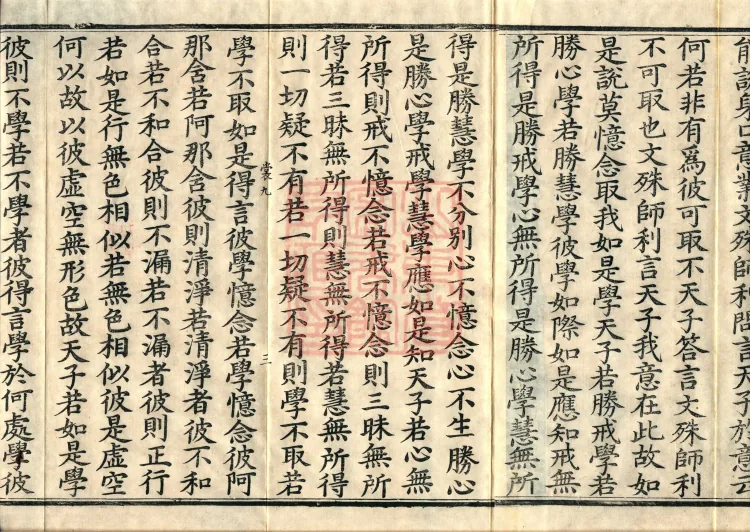 能說身口意業文殊師利問言天子於意云
何若非有爲彼可取不天子答言文殊師利
不可取也文殊師利言天子我意在此故如
是說莫憶念取我如是學天子若勝戒學若
勝心學若勝慧學彼學如際如是應知戒無
所得是勝戒學心無所得是勝心學慧無所
得是勝慧學不分別心不憶念心不生勝心
是勝心學戒學慧學應如是知天子若心無
所得則戒不憶念若戒不憶念則三昧無所
得若三昧無所得則慧無所得若慧無所得
則一切疑不有若一切疑不有則學不取若
裳九 三
學不取如是得言彼學憶念若學憶念彼阿
那舍若阿那舍彼則清淨若清淨者彼不和
合若不和合彼則不漏若不漏者彼則正行
若如是行無色相似若無色相似彼是虛空
何以故以彼虛空無形色故天子若如是學
彼則不學若不學者彼得言學於何處學彼